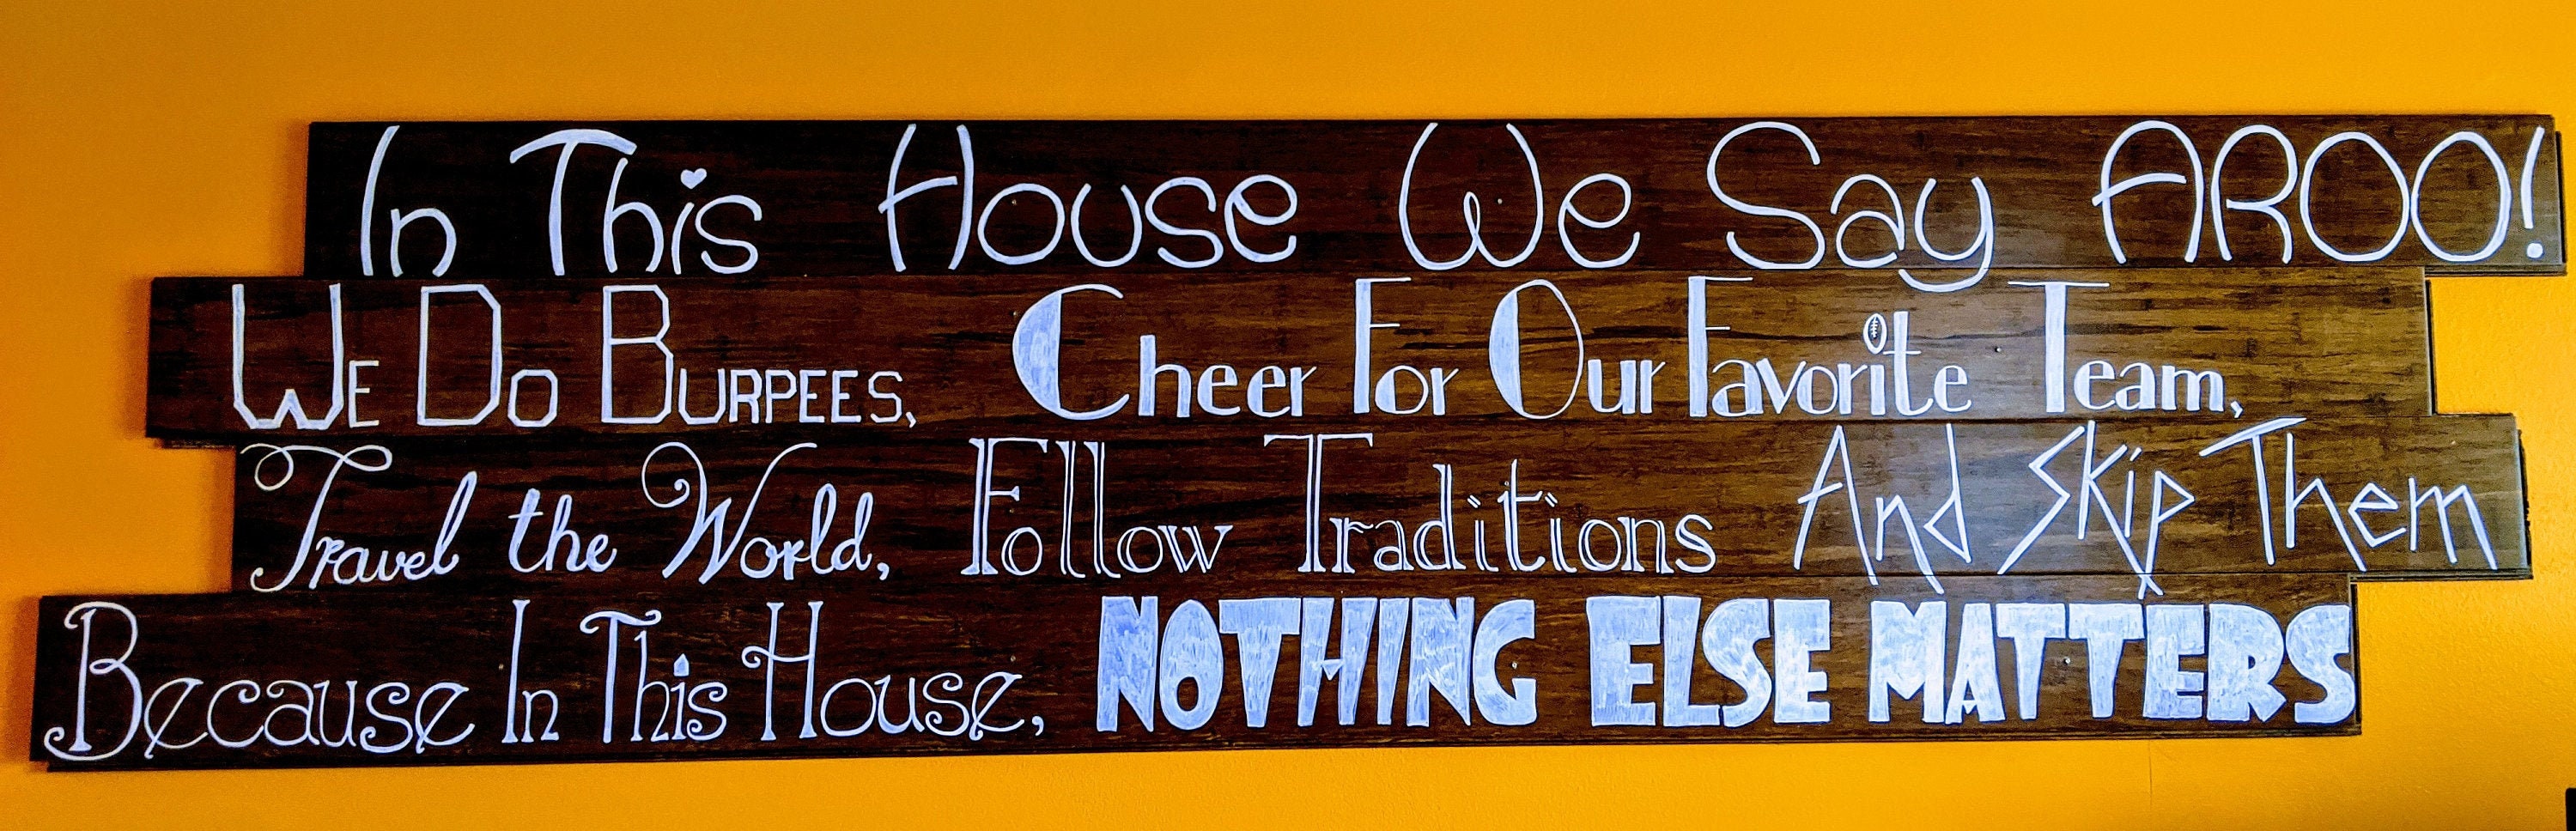 In This House We Say AROO!
WE DO BURPEES, Cheer For Our Favorite Team,
Travel the World, Follow Traditions And Skip Them
Because In This House, NOTHING ELSE MATTERS